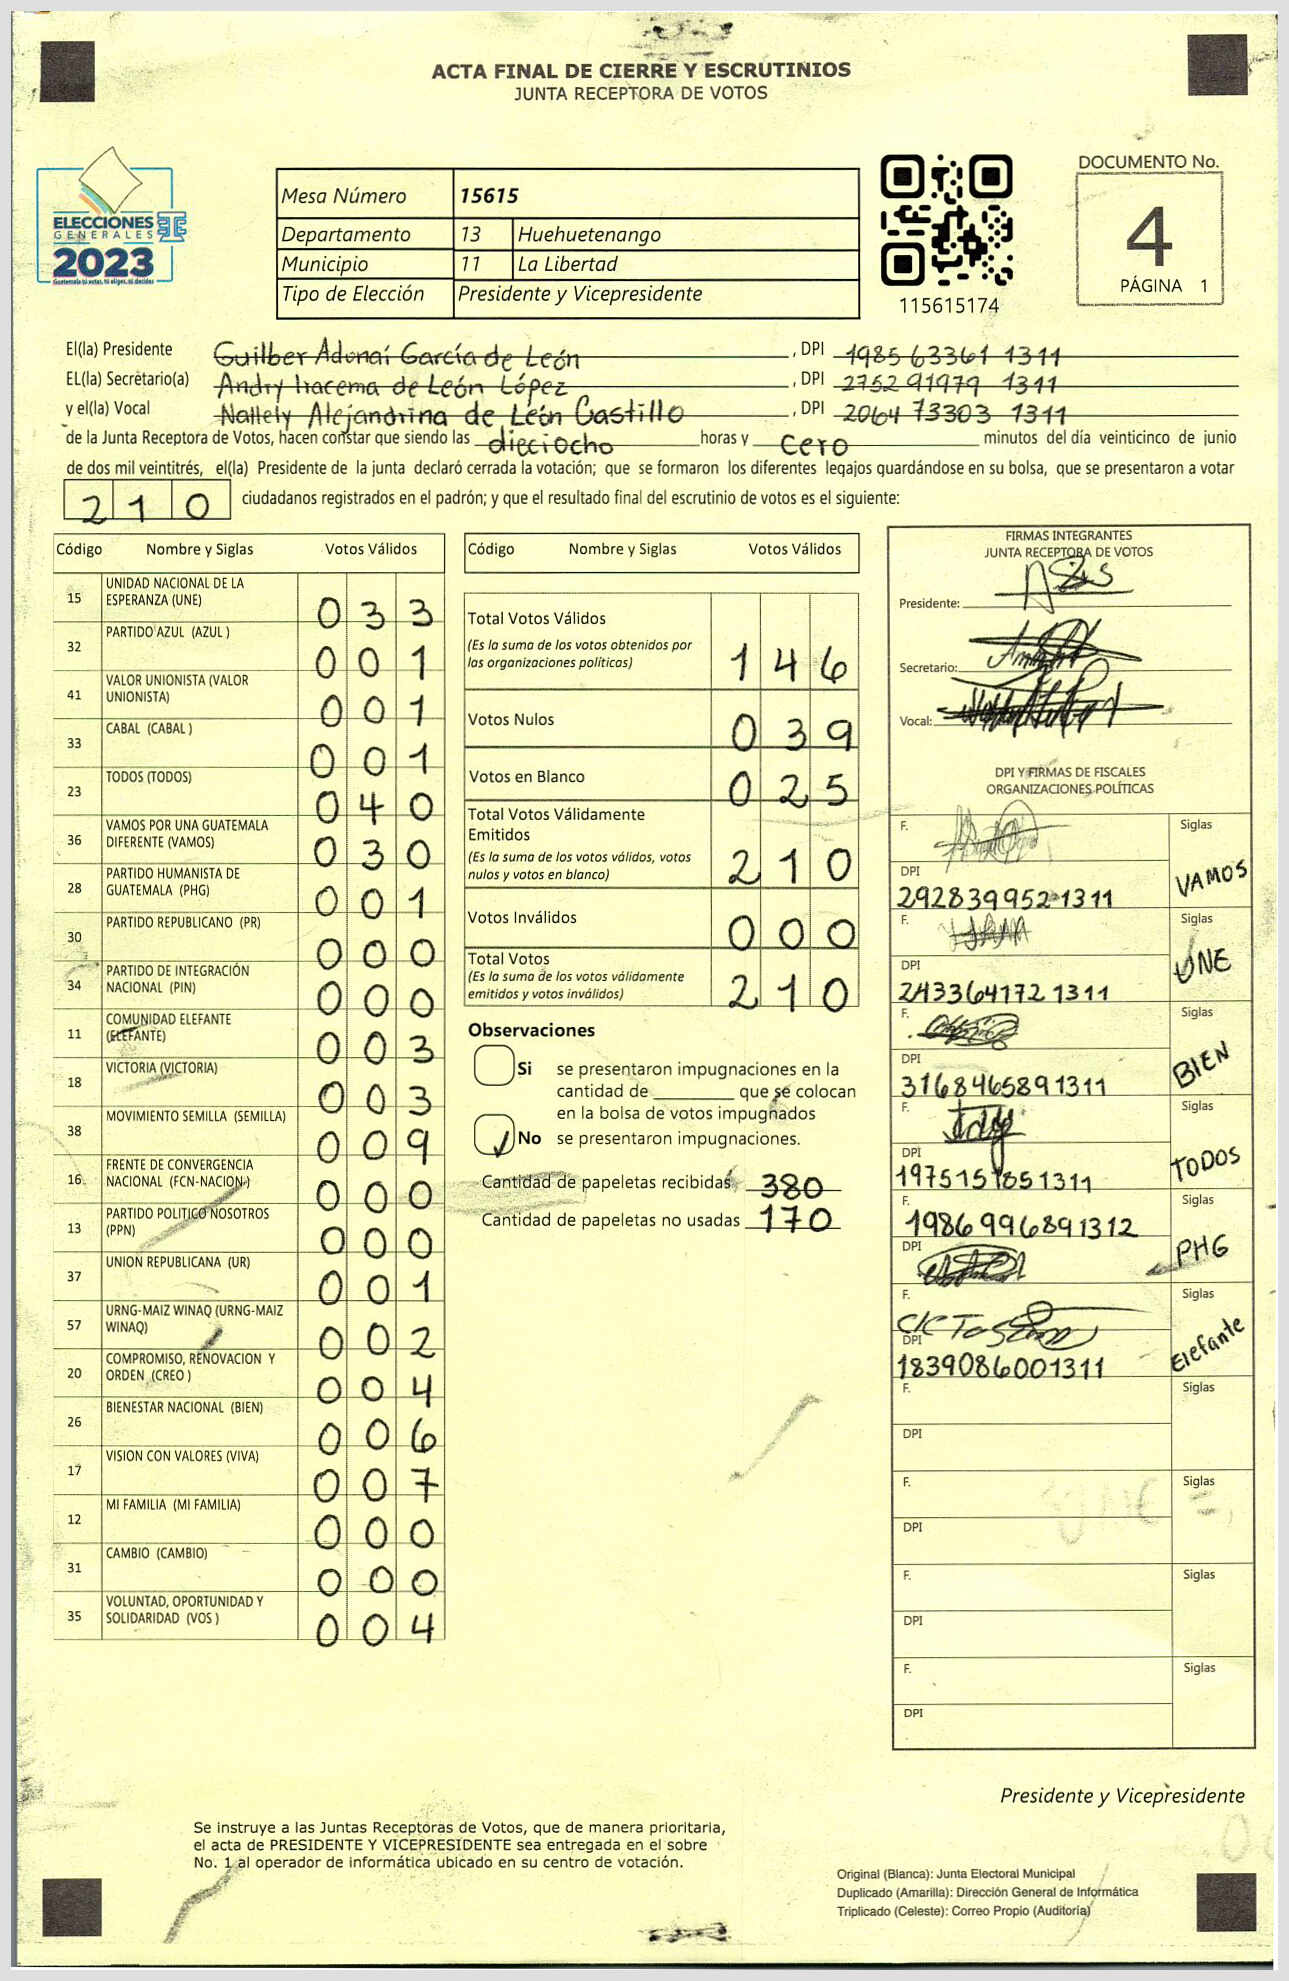 ACTA FINAL DE CIERRE Y ESCRUTINIOS
JUNTA RECEPTORA DE VOTOS
DOCUMENTO No.
4
PÁGINA 1
ELECCIONES
GENERALES
2023
Guatemala tú votas, tú eliges, tú decides
Mesa Número 15615
Departamento 13 Huehuetenango
Municipio 11 La Libertad
Tipo de Elección Presidente y Vicepresidente
115615174
El(la) Presidente Guilber Adonaí García de León , DPI 1985 63361 1311
EL(la) Secretario(a) Andry Iracema de León López , DPI 2752 91979 1311
y el(la) Vocal Nallely Alejandrina de León Castillo , DPI 2064 73303 1311
de la Junta Receptora de Votos, hacen constar que siendo las dieciocho horas y cero minutos del día veinticinco de junio
de dos mil veintitrés, el(la) Presidente de la junta declaró cerrada la votación; que se formaron los diferentes legajos guardándose en su bolsa, que se presentaron a votar
210 ciudadanos registrados en el padrón; y que el resultado final del escrutinio de votos es el siguiente:
Código Nombre y Siglas Votos Válidos
15 UNIDAD NACIONAL DE LA
ESPERANZA (UNE) 033
32 PARTIDO AZUL (AZUL ) 001
41 VALOR UNIONISTA (VALOR
UNIONISTA) 001
33 CABAL (CABAL ) 001
23 TODOS (TODOS) 040
36 VAMOS POR UNA GUATEMALA
DIFERENTE (VAMOS) 030
28 PARTIDO HUMANISTA DE
GUATEMALA (PHG) 001
30 PARTIDO REPUBLICANO (PR) 000
34 PARTIDO DE INTEGRACIÓN
NACIONAL (PIN) 000
11 COMUNIDAD ELEFANTE
(ELEFANTE) 003
18 VICTORIA (VICTORIA) 003
38 MOVIMIENTO SEMILLA (SEMILLA) 009
16 FRENTE DE CONVERGENCIA
NACIONAL (FCN-NACION) 000
13 PARTIDO POLITICO NOSOTROS
(PPN) 000
37 UNION REPUBLICANA (UR) 001
57 URNG-MAIZ WINAQ (URNG-MAIZ
WINAQ) 002
20 COMPROMISO, RENOVACION Y
ORDEN (CREO ) 004
26 BIENESTAR NACIONAL (BIEN) 006
17 VISION CON VALORES (VIVA) 007
12 MI FAMILIA (MI FAMILIA) 000
31 CAMBIO (CAMBIO) 000
35 VOLUNTAD, OPORTUNIDAD Y
SOLIDARIDAD (VOS ) 004
Código Nombre y Siglas Votos Válidos
Total Votos Válidos
(Es la suma de los votos obtenidos por
las organizaciones políticas) 146
Votos Nulos 039
Votos en Blanco 025
Total Votos Válidamente
Emitidos
(Es la suma de los votos válidos, votos
nulos y votos en blanco) 210
Votos Inválidos 000
Total Votos
(Es la suma de los votos válidamente
emitidos y votos inválidos) 210
Observaciones
Si se presentaron impugnaciones en la
cantidad de ________ que se colocan
en la bolsa de votos impugnados
No se presentaron impugnaciones.
Cantidad de papeletas recibidas 380
Cantidad de papeletas no usadas 170
FIRMAS INTEGRANTES
JUNTA RECEPTORA DE VOTOS
Presidente:
Secretario:
Vocal:
DPI Y FIRMAS DE FISCALES
ORGANIZACIONES POLÍTICAS
F. Siglas
DPI VAMOS
292839952 1311
F. Siglas
DPI UNE
243364172 1311
F. Siglas
DPI BIEN
3168465891311
F. Siglas
DPI TODOS
1975151851311
F. Siglas
1986996891312
DPI PHG
F. Siglas
DPI Elefante
1839086001311
F. Siglas
DPI
F. Siglas
DPI
F. Siglas
DPI
F. Siglas
DPI
Presidente y Vicepresidente
Se instruye a las Juntas Receptoras de Votos, que de manera prioritaria,
el acta de PRESIDENTE Y VICEPRESIDENTE sea entregada en el sobre
No. 1 al operador de informática ubicado en su centro de votación.
Original (Blanca): Junta Electoral Municipal
Duplicado (Amarilla): Dirección General de Informática
Triplicado (Celeste): Correo Propio (Auditoría)